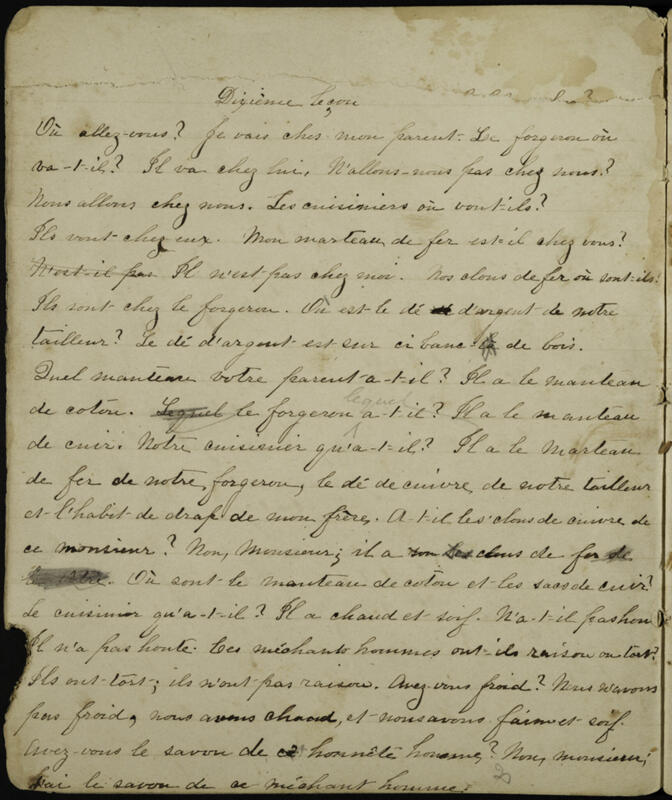 Dixième leçon
Où allez-vous? Je vais chez mon parent. Le forgeron où
va-t-il? Il va chez lui. N'allons-nous pas chez nous?
Nous allons chez nous. Les cuisiniers où vont-ils?
Ils vont chez eux. Mon marteau de fer est-il chez vous?
N'est-il pas Il n'est pas chez moi. Nos clous de fer où sont-ils?
Ils sont chez le forgeron. Où est le dé d'argent de notre
tailleur? Le dé d'argent est sur ci banc de bois.
Quel manteau votre parent a-t-il? Il a le manteau
de coton. Lequel le forgeron lequel a-t-il? Il a le manteau
de cuir. Notre cuisinier qu'a-t-il? Il a le marteau
de fer de notre forgeron, le dé de cuivre de notre tailleur
et l'habit de drap de mon frère. A-t-il les clous de cuivre de
ce monsieur? Non, Monsieur; il a son les clous de fer de
. Où sont le manteau de coton et les sacs de cuir?
Le cuisinier qu'a-t-il? Il a chaud et soif. N'a-t-il pas hon
Il n'a pas honte. Ces méchants hommes ont-ils raison ou tort?
Ils ont tort; ils n'ont pas raison. Avez-vous froid? Nous n'avons
pas froid, nous avons chaud, et nous avons faim et soif.
Avez-vous le savon de cet honnête homme? Non, monsieur,
j'ai le savon de ce méchant homme.